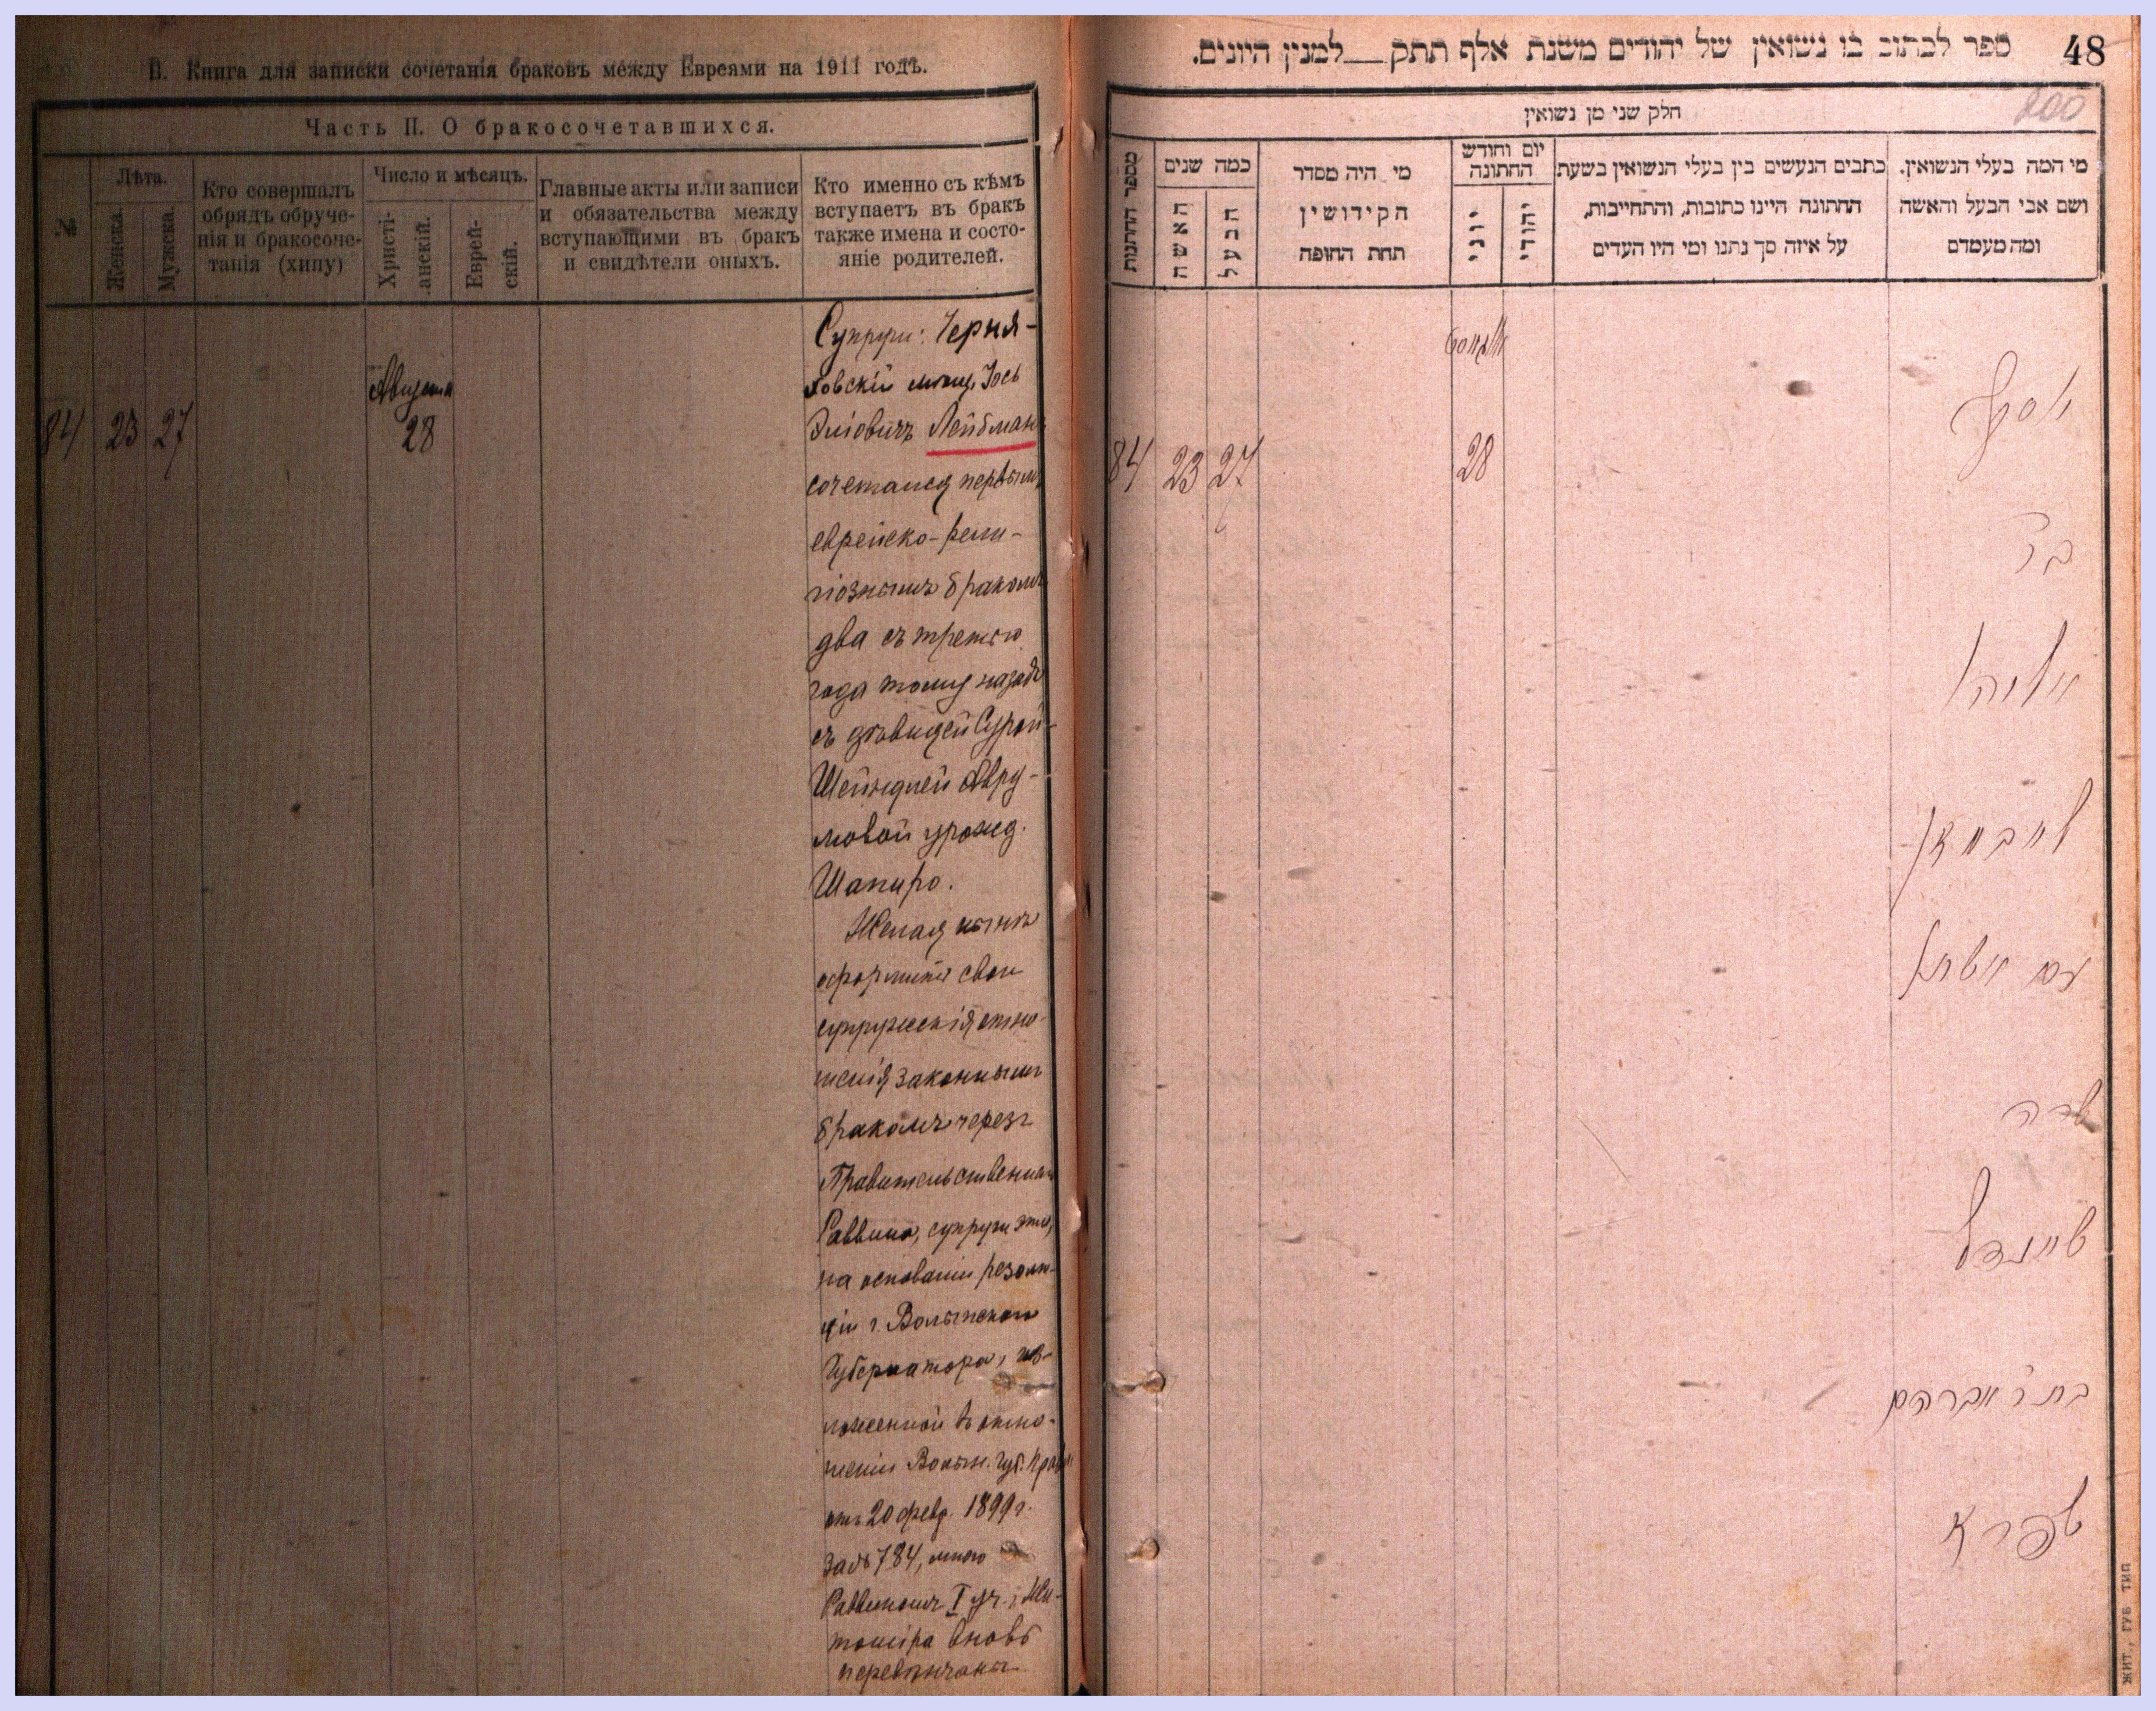 В. Книга для записки сочетанія браковъ между Евреями на 1911 годъ.
Часть II. О бракосочетавшихся.
№
Лѣта.
Женска.
Мужска.
Кто совершалъ
обрядъ обруче-
нія и бракосоче-
танія (хипу)
Число и мѣсяцъ.
Христі-
анскій.
Еврей-
скій.
Главные акты или записи
и обязательства между
вступающими въ бракъ
и свидѣтели оныхъ.
Кто именно съ кѣмъ
вступаетъ въ бракъ
также имена и состо-
яніе родителей.
84 23 27
Августа
28
Супруги: Черня-
ховскій мѣщ. Іось
Эліовичъ Лейбманъ
сочетался первымъ
еврейско-рели-
гіознымъ бракомъ
два съ третью
года тому назадъ
съ дѣвицей Сурой-
Шейндлей Авру-
мовой урожд.
Шапиро.
Желая нынѣ
оформить свои
супружескія отно-
шенія законнымъ
бракомъ черезъ
Правительственнаго
Раввина, супруги эти,
на основаніи резолю-
ціи г. Волынскаго
Губернатора, из-
ложенной въ отно-
шеніи Волын. Губ. Правл
отъ 20 февр. 1899 г.
за № 784, мною
Раввиномъ I уч. г. Жи-
томіра вновь
перевѣнчаны
48
ספר לכתוב בו נשואין של יהודים משנת אלף תתק__למנין היונים.
200
חלק שני מן נשואין
מספר החתונות
כמה שנים
האשה
הבעל
מי היה מסדר
הקידושין
תחת החופה
יום וחודש
החתונה
יוני
יהודי
כתבים הנעשים בין בעלי הנשואין בשעת
החתונה היינו כתובות, והתחייבות,
על איזה סך נתנו ומי היו העדים
מי המה בעלי הנשואין.
ושם אבי הבעל והאשה
ומה מעמדם
אוגוסט
84 23 27
28
יוסף
בר
אליהו
לייבמאן
עם
שרה
שיינדל
בת ר' אברהם
שפירא
ЖИТ., ГУБ ТИП